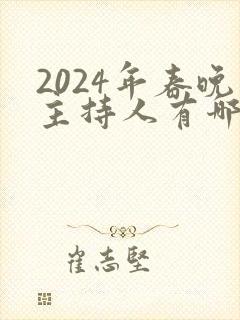 2024年春晚
主持人有哪
崔志坚